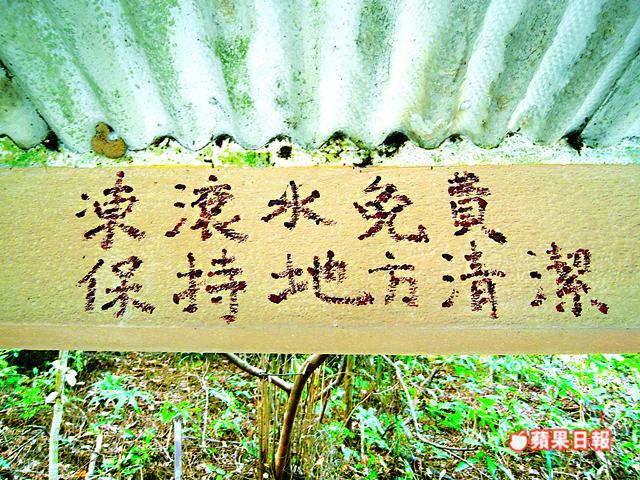 凍滾水免費
保持地方清潔
蘋果日報